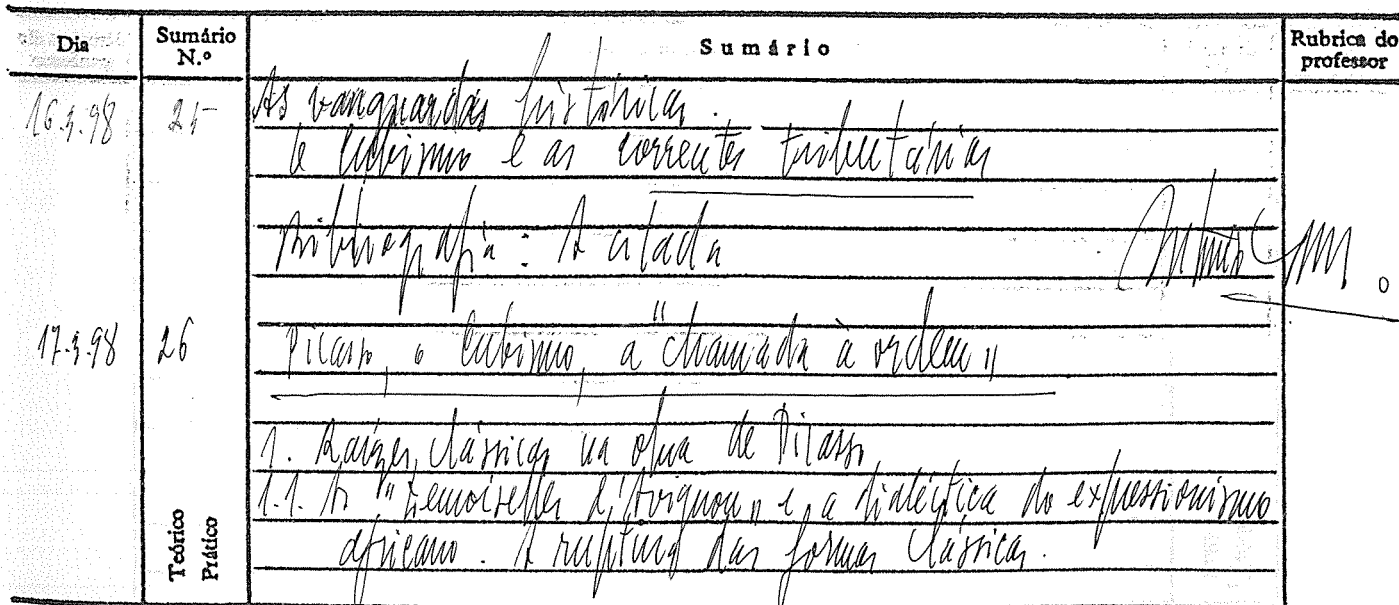 Dia Sumário N.º Sumário Rubrica do professor
16.3.98 25 As vanguardas históricas.
O Cubismo e as correntes tributárias
Bibliografia: A citada
17.3.98 26 Picasso, o Cubismo, a "chamada à ordem"
1. Raízes clássicas na obra de Picasso
1.1. As "Demoiselles d'Avignon" e a dialéctica do expressionismo
africano. A ruptura das formas clássicas.
Teórico
Prático